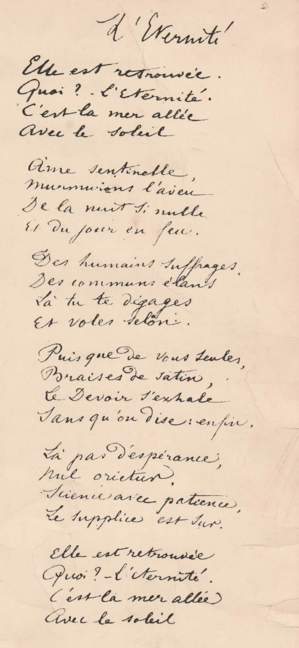 L'Eternité
Elle est retrouvée.
Quoi? - L'Eternité.
C'est la mer allée
Avec le soleil
Ame sentinelle,
Murmurons l'aveu
De la nuit si nulle
Et du jour en feu.
Des humains suffrages,
Des communs élans
Là tu te dégages
Et voles selon.
Puisque de vous seules,
Braises de satin,
Le Devoir s'exhale
Sans qu'on dise: enfin.
Là pas d'espérance,
Nul orietur.
Science avec patience,
Le supplice est sûr.
Elle est retrouvée
Quoi? - L'Eternité.
C'est la mer allée
Avec le soleil